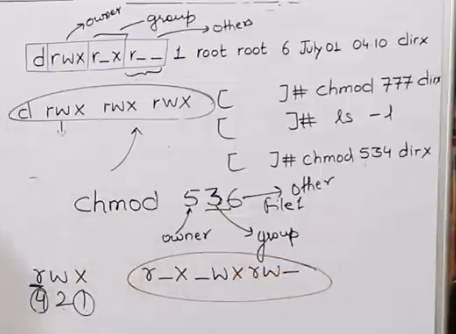 owner group others
drwx r_x r__ 1 root root 6 July 01 04.10 dirx
d rwx rwx rwx [ ]# chmod 777 dirx
[ ]# ls -l
[ ]# chmod 534 dirx
chmod 536 other
File1
owner group
r_x _wx rw_
rwx
421